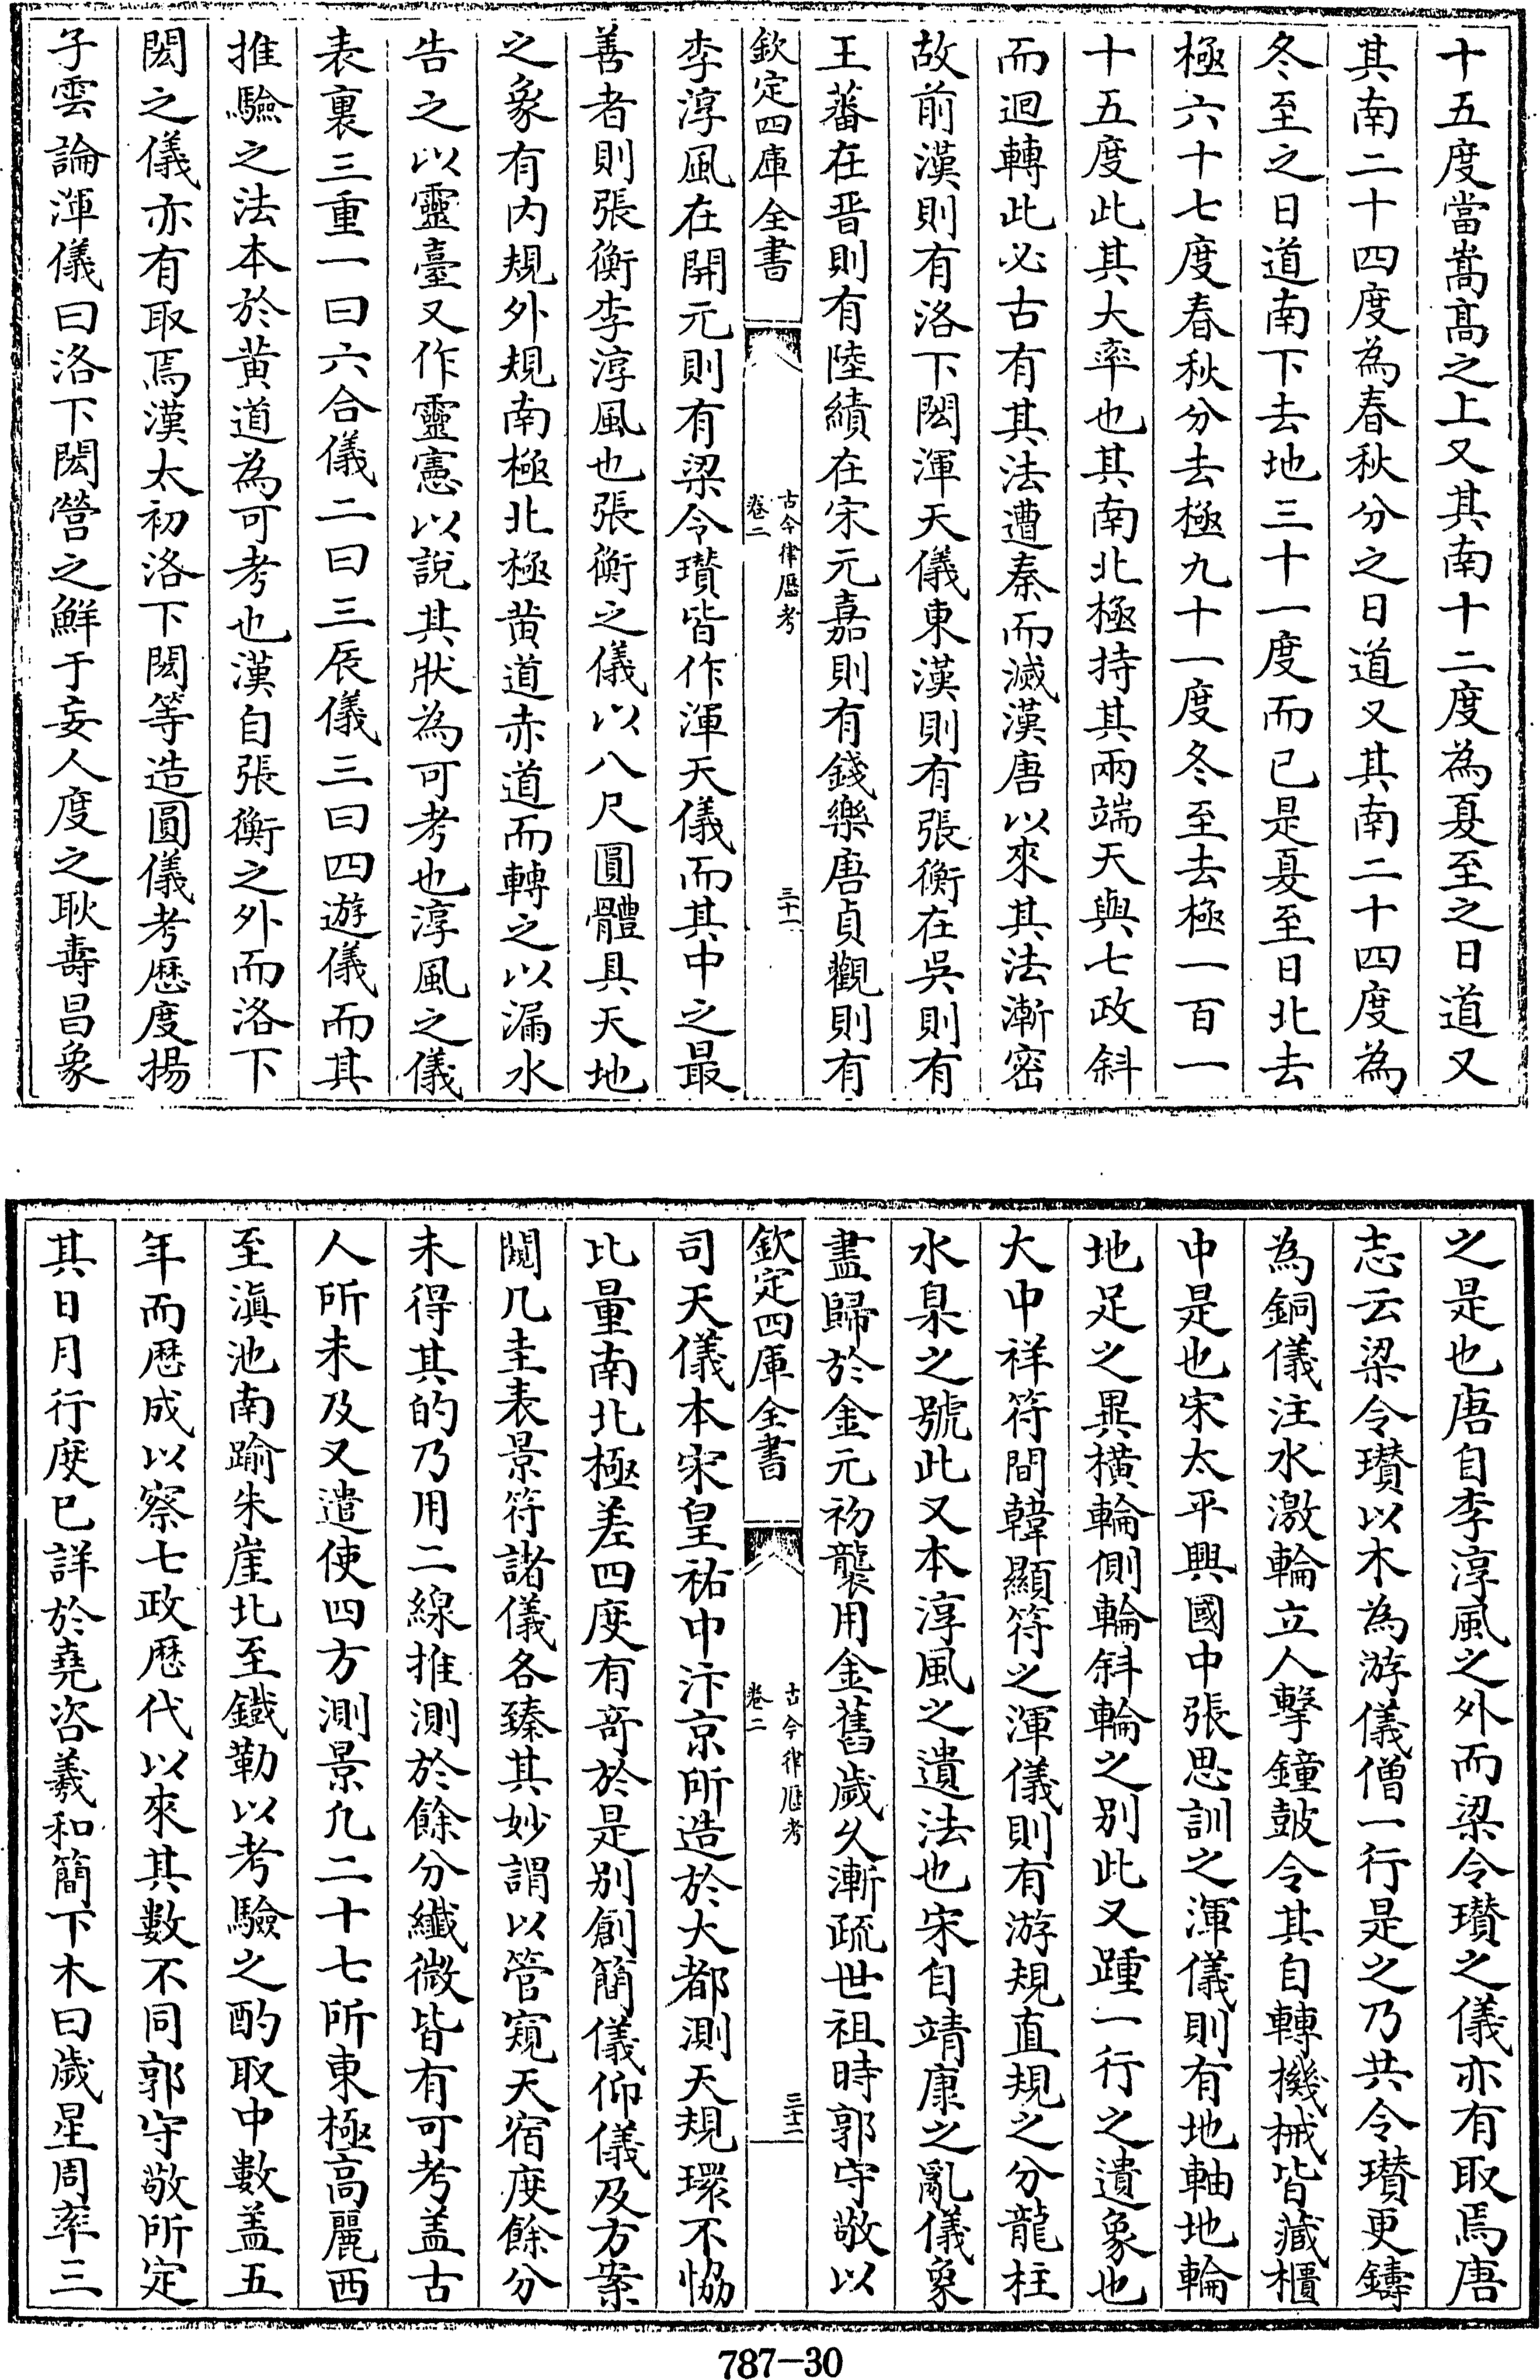 十五度當嵩髙之上又其南十二度為夏至之日道又
其南二十四度為春秋分之日道又其南二十四度為
冬至之日道南下去地三十一度而已是夏至日北去
極六十七度春秋分去極九十一度冬至去極一百一
十五度此其大率也其南北極持其兩端天與七政斜
而迴轉此必古有其法遭秦而滅漢唐以來其法漸密
故前漢則有洛下閎渾天儀東漢則有張衡在吳則有
王蕃在晋則有陸績在宋元嘉則有錢樂唐貞觀則有
欽定四庫全書
古今律厯考
卷二
三十一
李淳風在開元則有梁令瓚皆作渾天儀而其中之最
善者則張衡李淳風也張衡之儀以八尺圓體具天地
之象有内規外規南極北極黄道赤道而轉之以漏水
告之以靈臺又作靈憲以說其狀為可考也淳風之儀
表裏三重一曰六合儀二曰三辰儀三曰四遊儀而其
推驗之法本於黄道為可考也漢自張衡之外而洛下
閎之儀亦有取焉漢太初洛下閎等造圓儀考厯度揚
子雲論渾儀曰洛下閎營之鮮于妄人度之耿壽昌象
之是也唐自李淳風之外而梁令瓚之儀亦有取焉唐
志云梁令瓚以木為游儀僧一行是之乃共令瓚更鑄
為銅儀注水激輪立人擊鐘鼓令其自轉機械皆藏櫃
中是也宋太平興國中張思訓之渾儀則有地軸地輪
地足之異橫輪側輪斜輪之别此又踵一行之遺象也
大中祥符間韓顯符之渾儀則有游規直規之分龍柱
水臬之號此又本淳風之遺法也宋自靖康之亂儀象
盡歸於金元初襲用金舊歲久漸疏世祖時郭守敬以
欽定四庫全書
古今律厯考
卷二
三十二
司天儀本宋皇祐中汴京所造於大都測天規環不恊
比量南北極差四度有竒於是别創簡儀仰儀及方案
闚几圭表景符諸儀各臻其妙謂以管窺天宿度餘分
未得其的乃用二線推測於餘分纖微皆有可考盖古
人所未及又遣使四方測景凡二十七所東極高麗西
至滇池南踰朱崖北至鐵勒以考驗之酌取中數盖五
年而厯成以察七政厯代以來其數不同郭守敬所定
其日月行度已詳於堯咨羲和簡下木曰歲星周率三
787-30